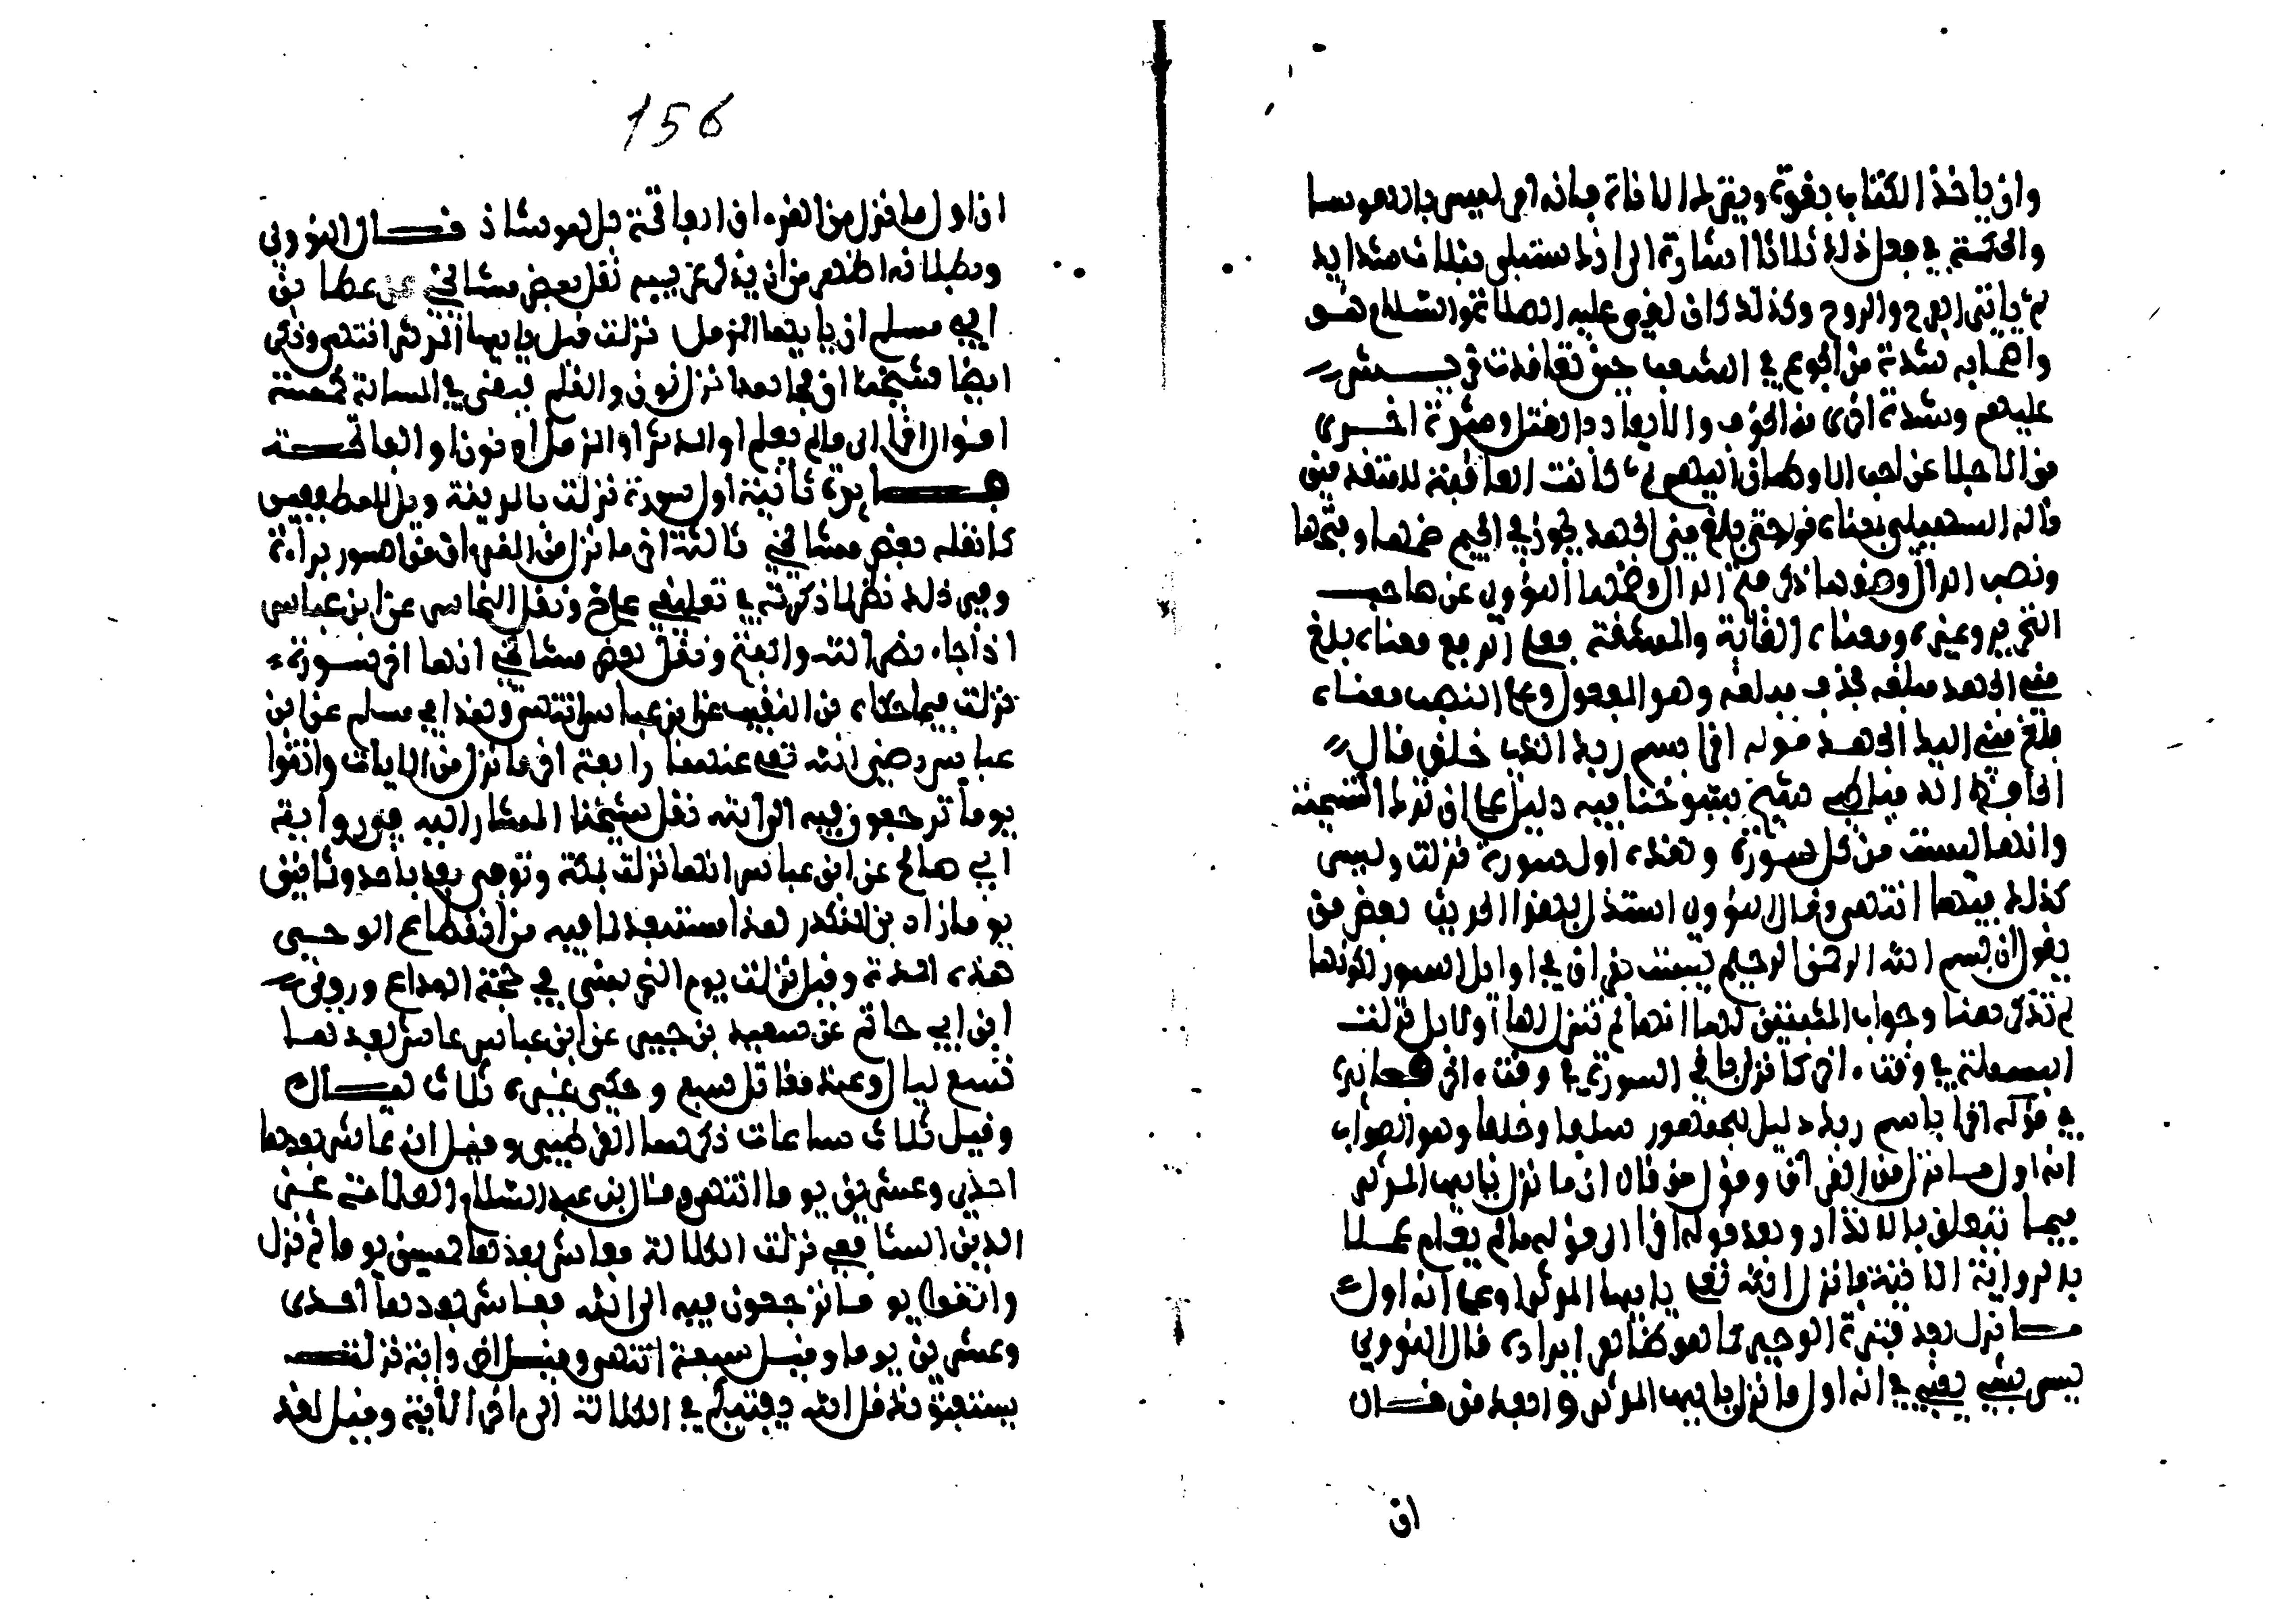 وان ياخذ الكتاب بقوة ويترك الاناة فانه امر ليس بالهوينا
والحكمة في فعل ذلك ثلاثا اشارة الى انك ستبلى بثلاث شدايد
ثم ياتى الفرج والروح وكذلك كان لقى عليه الصلاة والسلام هو
واصحابه شدة من الجوع في الشعب حين تعاقدت قريش
عليهم وشدة اخرى من الخوف والايعاد بالقتل وشدة اخرى
من الاجلا عن احب الاوطان اليهم ثم كانت العاقبة للمتقين
قاله السهيلي بمعناه قوله حتى بلغ مني الجهد يجوز في الجيم ضمها وفتحها
ونصب الدال وضمها ذكر فتح الدال وضمها النووي عن صاحب
التحرير وغيره ومعناه الغاية والمشقة فعلى الرفع معناه بلغ
مني الجهد مبلغه فحذف مبلغه وهو المفعول وعلى النصب معناه
بلغ مني الملك الجهد قوله اقرا باسم ربك الذي خلق قال
الحافظ شيخ شيوخنا فيه دليل على ان ترك التسمية
وانها ليست من كل سورة وهذه اول سورة نزلت وليس
كذلك فيها انتهى وقال النووي استدل بهذا الحديث بعض من
يقول ان بسم الله الرحمن الرحيم ليست بقران في اوايل السور لكونها
لم تذكر هنا وجواب المثبتين لها انها لم تنزل اولا بل نزلت
البسملة في وقت اخر كما نزل باقي السورة في وقت اخر فايدة
في قوله اقرا باسم ربك دليل للجمهور سلفا وخلفا وهو الصواب
انه اول ما نزل من القران وقول من قال ان ما نزل يايها المدثر
فيما يتعلق بالانذار وبعد قوله اقرا الى قوله ما لم يعلم عملا
بالرواية الاتية فانزل الله تعالى يايها المدثر او على انه اول
ما نزل بعد فترة الوحي كما هو ظاهر ايراده قال النووي
ليس بشي يعني في انه اول ما نزل يايها المدثر وابعد من قال
ان
156
ان اول ما نزل من القران الفاتحة بل هو شاذ قال النووي
وبطلانه اظهر من ان يذكر غريبه نقل بعض مشايخي عن عطا بن
ابي مسلم ان يايها المزمل نزلت قبل يايها المدثر انتهى وذكر
ايضا شيخنا ان مجاهدا نزل نون والقلم فبقى في المسالة خمسة
اقوال اقرا الى ما لم يعلم او المدثر او المزمل او نون او الفاتحة
فايدة ثانية اول سورة نزلت بالمدينة ويل للمطففين
كما نقله بعض مشايخي ثالثة اخر ما نزل من القران من السور براءة
وفي ذلك نظر لما ذكرته في تعليقي على خ ونقل النحاس عن ابن عباس
اذا جاء نصر الله والفتح ونقل بعض مشايخي انها اخر سورة
نزلت فيما حكاه بن النقيب عن ابن عباس انتهى وهذا في مسلم عن ابن
عباس رضي الله تعالى عنهما رابعة اخر ما نزل من الايات واتقوا
يوما ترجعون فيه الى الله نقل شيخنا المشار اليه من رواية
ابي صالح عن ابن عباس انها نزلت بمكة وتوفي بعد باحد وثمانين
يوما زاد بن المنكدر هذا مستبعد لما فيه من انقطاع الوحي
هذه المدة وقيل نزلت يوم النحر بمنى في حجة الوداع وروى
ابن ابي حاتم عن سعيد بن جبير عن ابن عباس عاش بعدها
تسع ليال وعند مقاتل سبع وحكى غيره ثلاث ليال
وقيل ثلاث ساعات ذكرها القرطبي وقيل انه عاش بعدها
احدى وعشرين يوما انتهى وقال ابن عبد السلام العلامة عز
الدين الشافعي نزلت الكلالة فعاش بعدها خمسين يوما ثم نزل
واتقوا يوما ترجعون فيه الى الله فعاش بعدها احدى
وعشرين يوما وقيل سبعة انتهى وقيل اخر اية نزلت
يستفتونك قل الله يفتيكم في الكلالة الى اخر الاية وقيل لقد